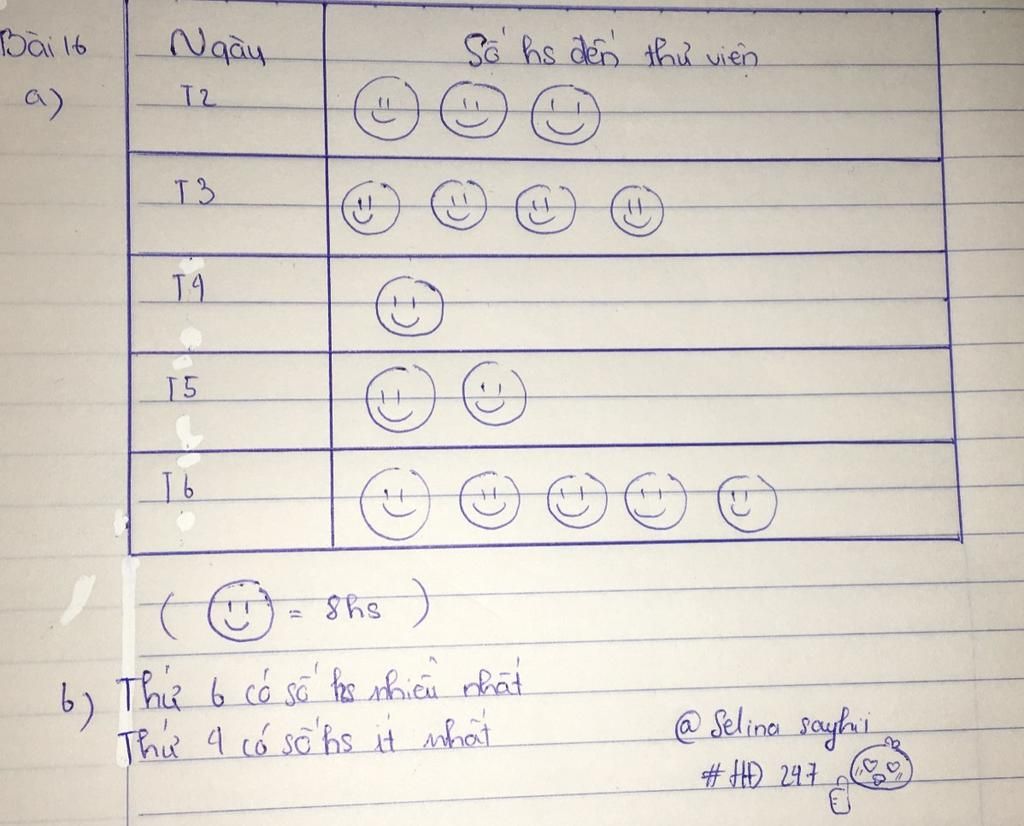 Bài 16
a)
Ngày Số hs đến thư viện
T2
T3
T4
T5
T6
( = 8hs )
b) Thứ 6 có số hs nhiều nhất
Thứ 4 có số hs ít nhất
@ Selina sayhii
# HĐ 247